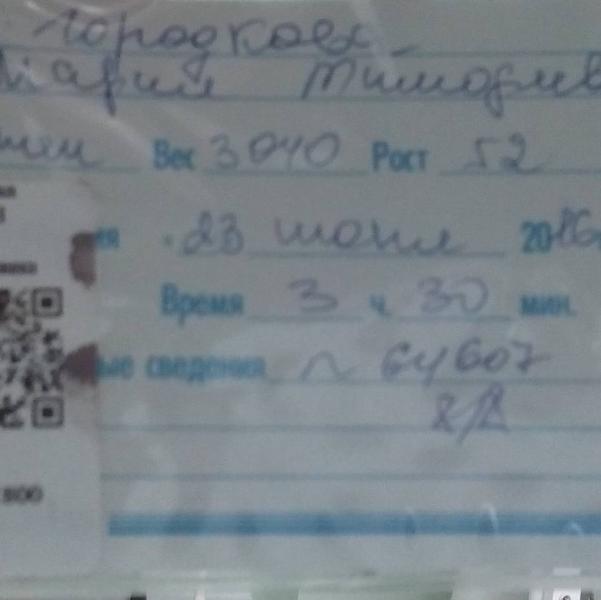 Городков
Мария Тимофеев
Вес 3040 Рост 52
ия 23 июня 20
Время 3 ч. 30 мин.
ые сведения ~ 64607
800